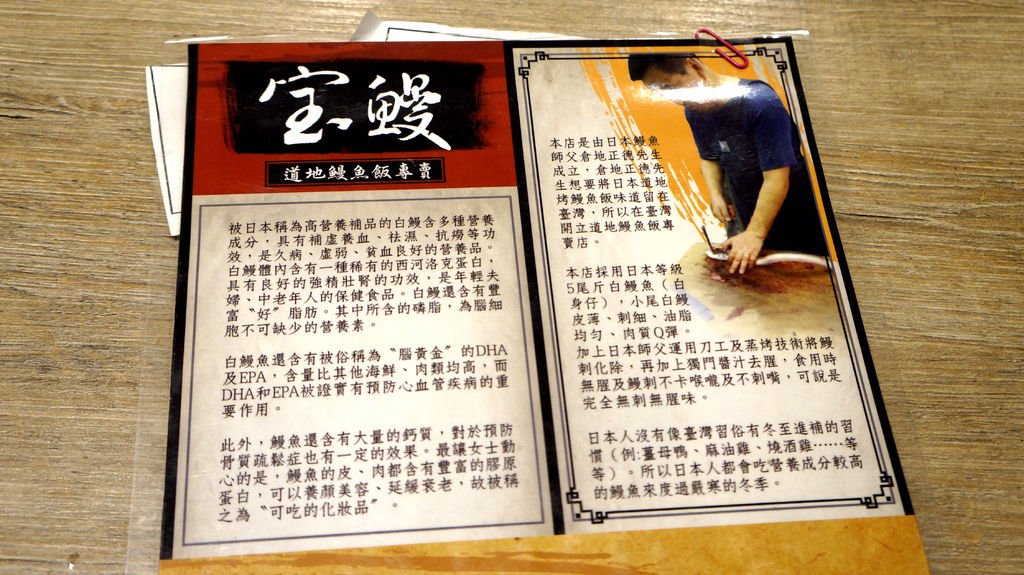 宝鰻
道地鰻魚飯專賣
被日本稱為高營養補品的白鰻含多種營養
成分，具有補虛養血、祛濕、抗癆等功
效，是久病、虛弱、貧血良好的營養品。
白鰻體內含有一種稀有的西河洛克蛋白，
具有良好的強精壯腎的功效，是年輕夫
婦、中老年人的保健食品。白鰻還含有豐
富〝好〞脂肪。其中所含的磷脂，為腦細
胞不可缺少的營養素。
白鰻魚還含有被俗稱為〝腦黃金〞的DHA
及EPA，含量比其他海鮮、肉類均高，而
DHA和EPA被證實有預防心血管疾病的重
要作用。
此外，鰻魚還含有大量的鈣質，對於預防
骨質疏鬆症也有一定的效果。最讓女士動
心的是，鰻魚的皮、肉都含有豐富的膠原
蛋白，可以養顏美容、延緩衰老，故被稱
之為〝可吃的化妝品〞。
本店是由日本鰻魚
師父倉地正德先生
成立，倉地正德先
生想要將日本道地
烤鰻魚飯味道留在
臺灣，所以在臺灣
開立道地鰻魚飯專
賣店。
本店採用日本等級
5尾斤白鰻魚（白
身仔），小尾白鰻
皮薄、刺細、油脂
均勻、肉質Q彈。
加上日本師父運用刀工及蒸烤技術將鰻
刺化除，再加上獨門醬汁去腥，食用時
無腥及鰻刺不卡喉嚨及不刺嘴，可說是
完全無刺無腥味。
日本人沒有像臺灣習俗有冬至進補的習
慣（例:薑母鴨、麻油雞、燒酒雞⋯⋯等
等）。所以日本人都會吃營養成分較高
的鰻魚來度過嚴寒的冬季。